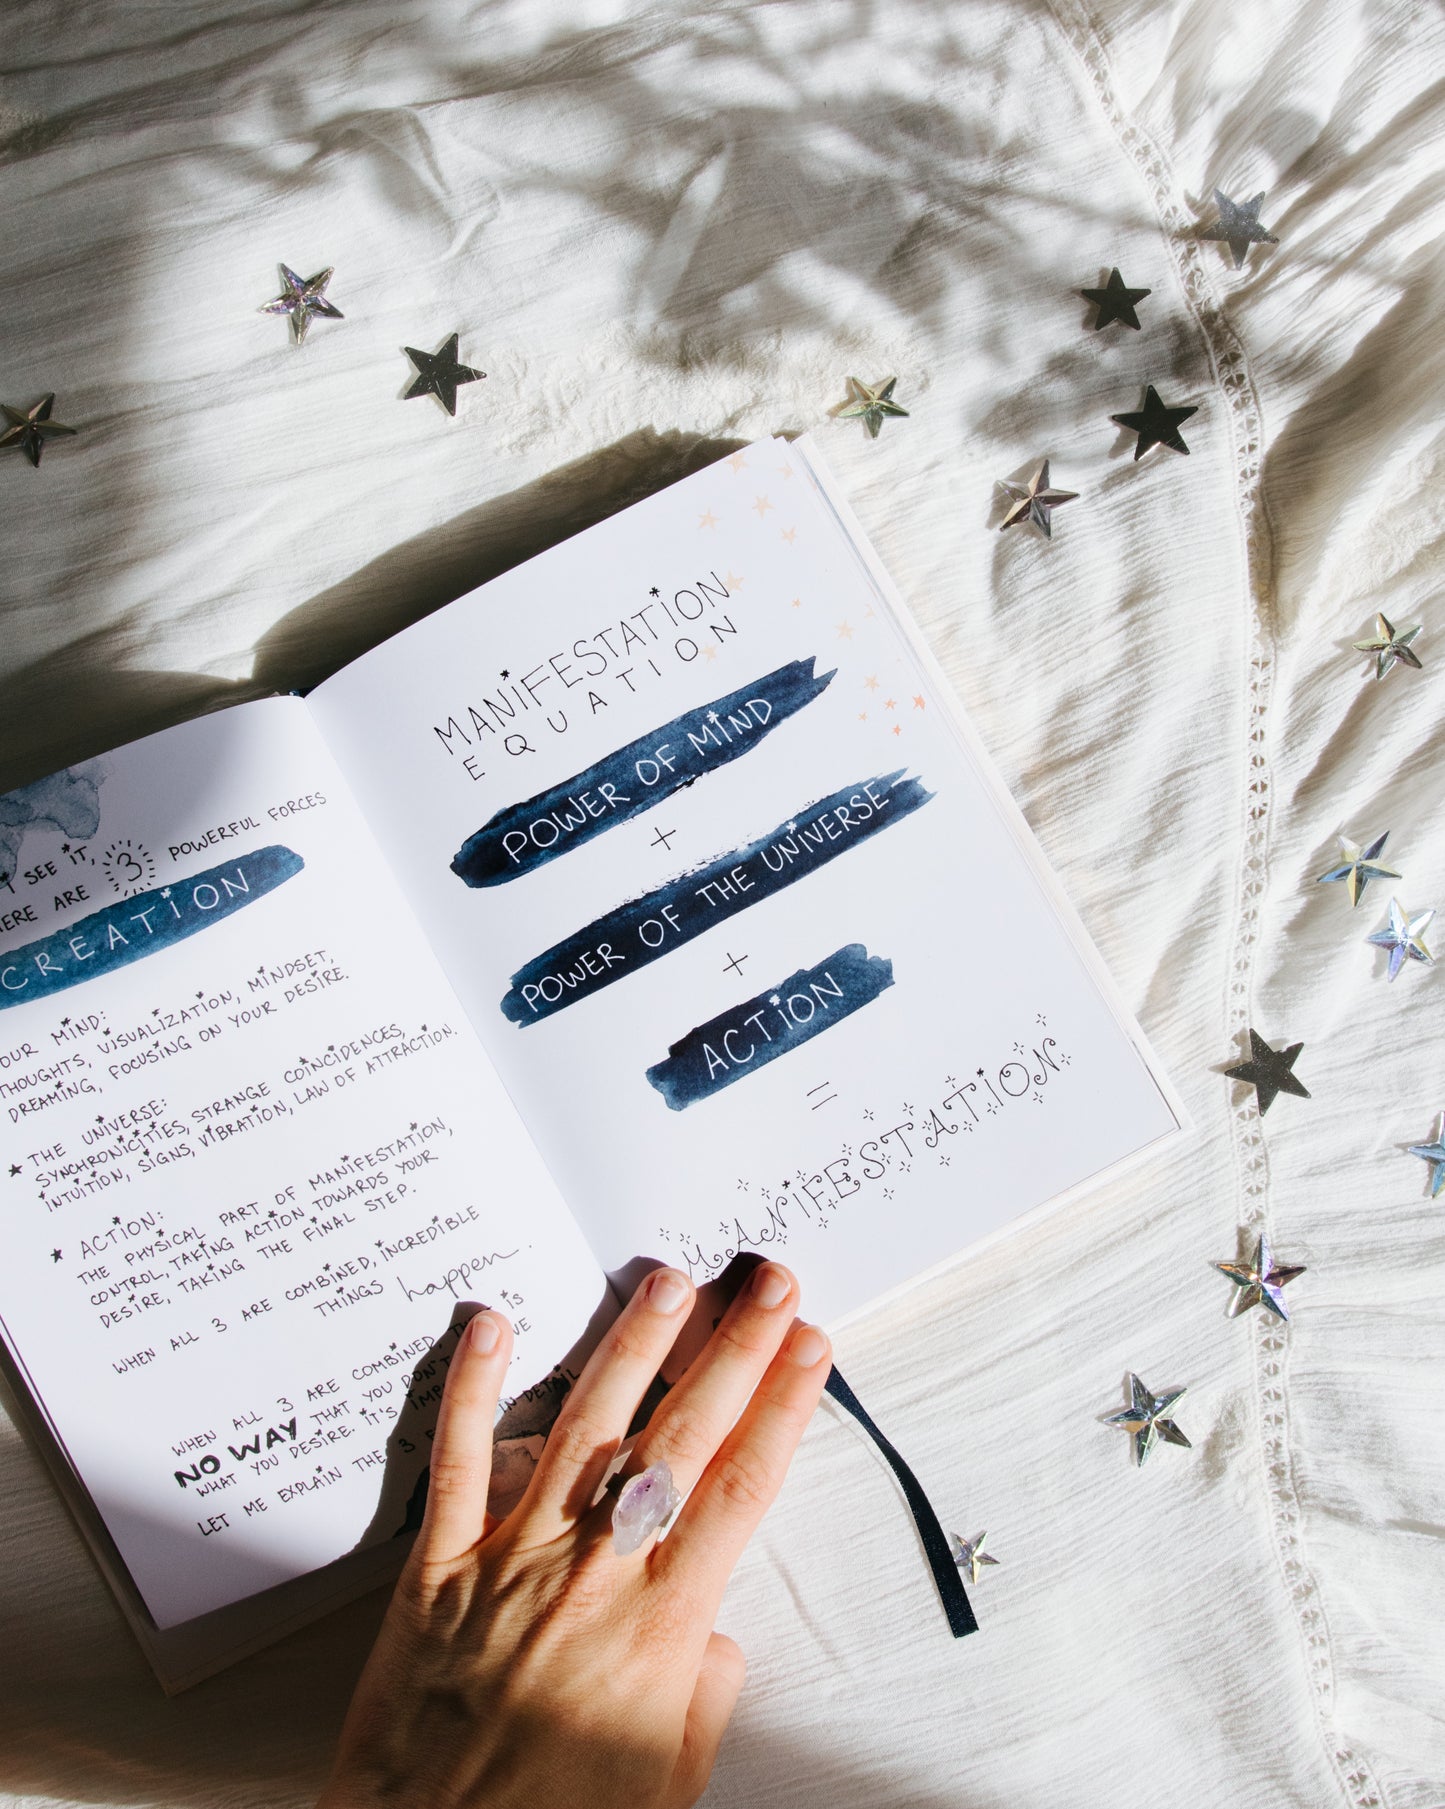 I SEE IT,
ERE ARE 3 POWERFUL FORCES
CREATION
OUR MIND:
THOUGHTS, VISUALIZATION, MINDSET,
DREAMING, FOCUSING ON YOUR DESIRE.
★ THE UNIVERSE:
SYNCHRONICITIES, STRANGE COINCIDENCES,
INTUITION, SIGNS, VIBRATION, LAW OF ATTRACTION.
★ ACTION:
THE PHYSICAL PART OF MANIFESTATION,
CONTROL, TAKING ACTION TOWARDS YOUR
DESIRE, TAKING THE FINAL STEP.
WHEN ALL 3 ARE COMBINED, INCREDIBLE
THINGS happen.
WHEN ALL 3 ARE COMBINED, IS
NO WAY THAT YOU DON'T
WHAT YOU DESIRE. IT'S IN DETAIL
LET ME EXPLAIN THE 3
MANIFESTATION
EQUATION
POWER OF MIND
+
POWER OF THE UNIVERSE
+
ACTION
=
MANIFESTATION